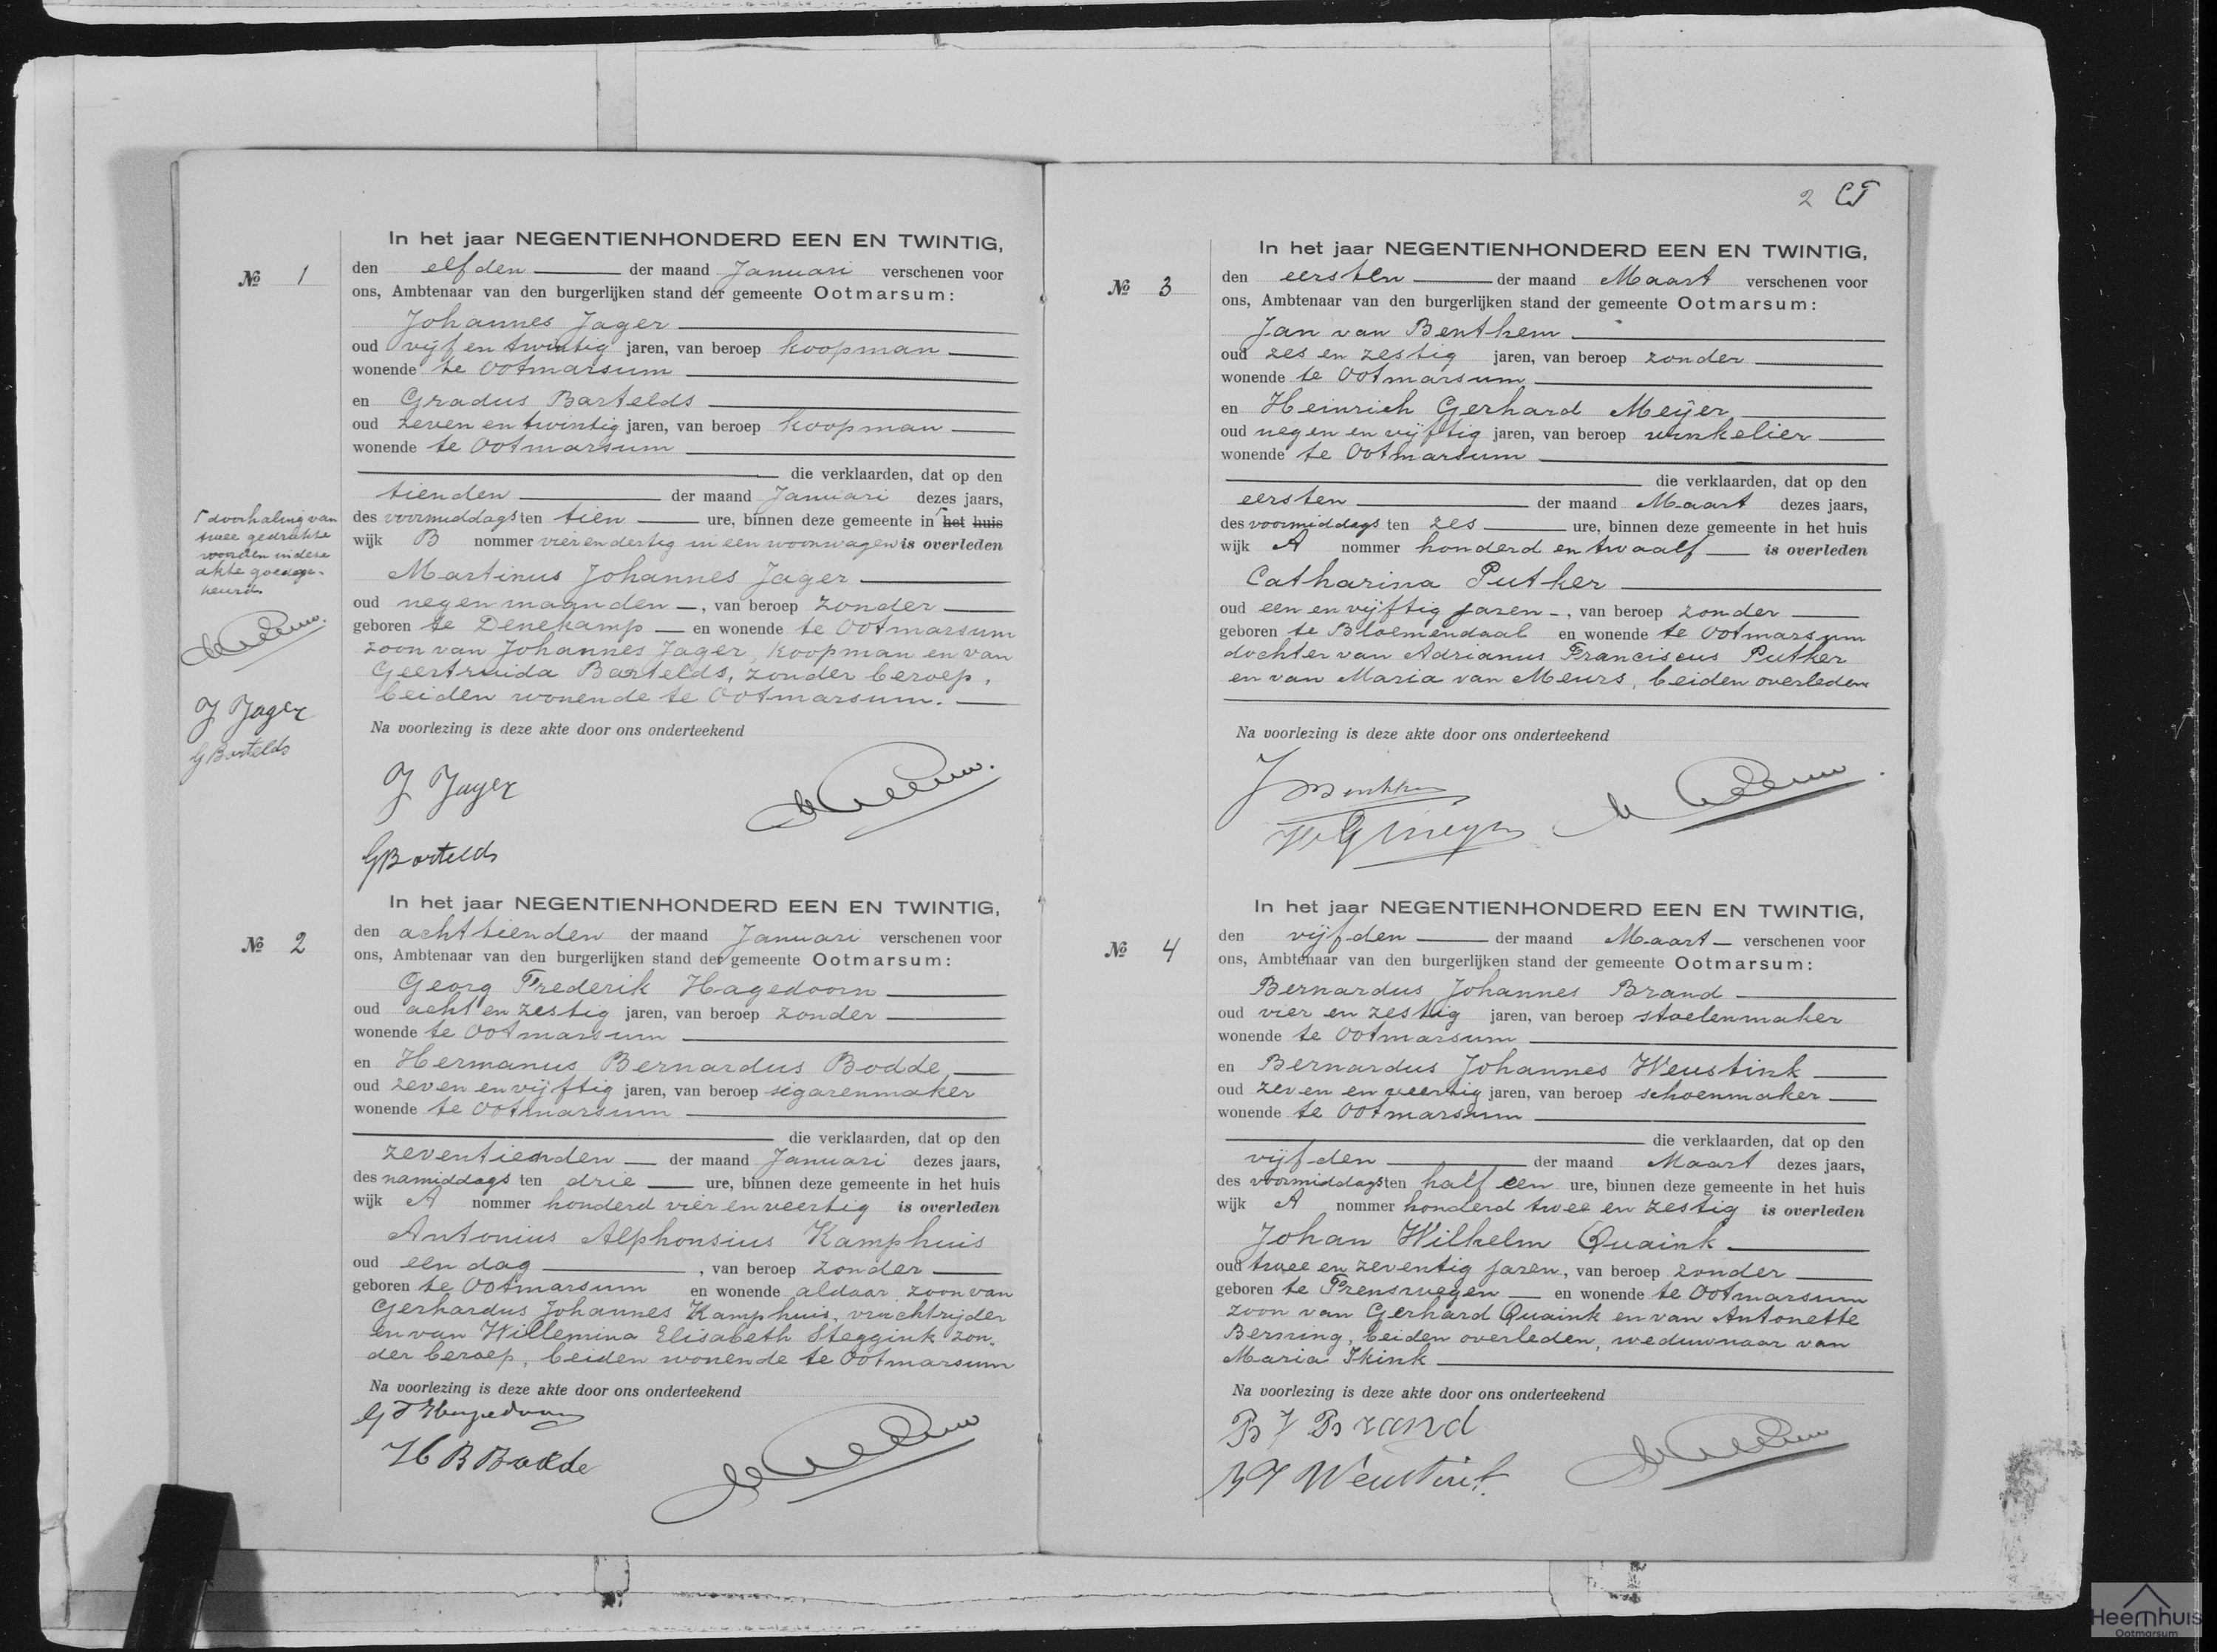 In het jaar NEGENTIENHONDERD EEN EN TWINTIG,
№ 1
den elfden der maand Januari verschenen voor
ons, Ambtenaar van den burgerlijken stand der gemeente Ootmarsum:
Johannes Jager
oud vijf en twintig jaren, van beroep koopman
wonende te Ootmarsum
en Gradus Bartelds
oud zeven en twintig jaren, van beroep koopman
wonende te Ootmarsum
die verklaarden, dat op den
tienden der maand Januari dezes jaars,
des voormiddags ten tien ure, binnen deze gemeente in het huis
wijk B nommer vier en dertig in een woonwagen is overleden
Martinus Johannes Jager
oud negen maanden, van beroep zonder
geboren te Denekamp en wonende te Ootmarsum
zoon van Johannes Jager, koopman en van
Geertruida Bartelds, zonder beroep,
beiden wonende te Ootmarsum.
Na voorlezing is deze akte door ons onderteekend
J Jager
GBartelds
doorhaling van
twee gedrukte
woorden in deze
akte goedge-
keurd.
J Jager
G Bartelds
In het jaar NEGENTIENHONDERD EEN EN TWINTIG,
№ 2
den achttienden der maand Januari verschenen voor
ons, Ambtenaar van den burgerlijken stand der gemeente Ootmarsum:
Georg Frederik Hagedoorn
oud acht en zestig jaren, van beroep zonder
wonende te Ootmarsum
en Hermanus Bernardus Bodde
oud zeven en vijftig jaren, van beroep sigarenmaker
wonende te Ootmarsum
die verklaarden, dat op den
zeventienden der maand Januari dezes jaars,
des namiddags ten drie ure, binnen deze gemeente in het huis
wijk A nommer honderd vier en veertig is overleden
Antonius Alphonsius Kamphuis
oud een dag, van beroep zonder
geboren te Ootmarsum en wonende aldaar zoon van
Gerhardus Johannes Kamphuis, vrachtrijder
en van Willemina Elisabeth Steggink zon-
der beroep, beiden wonende te Ootmarsum
Na voorlezing is deze akte door ons onderteekend
G F Hagedoorn
H B Bodde
2 CT
In het jaar NEGENTIENHONDERD EEN EN TWINTIG,
№ 3
den eersten der maand Maart verschenen voor
ons, Ambtenaar van den burgerlijken stand der gemeente Ootmarsum:
Jan van Benthem
oud zes en zestig jaren, van beroep zonder
wonende te Ootmarsum
en Heinrich Gerhard Meijer
oud negen en vijftig jaren, van beroep winkelier
wonende te Ootmarsum
die verklaarden, dat op den
eersten der maand Maart dezes jaars,
des voormiddags ten zes ure, binnen deze gemeente in het huis
wijk A nommer honderd en twaalf is overleden
Catharina Putker
oud een en vijftig jaren, van beroep zonder
geboren te Bloemendaal en wonende te Ootmarsum
dochter van Adrianus Franciscus Putker
en van Maria van Meurs, beiden overleden
Na voorlezing is deze akte door ons onderteekend
In het jaar NEGENTIENHONDERD EEN EN TWINTIG,
№ 4
den vijfden der maand Maart verschenen voor
ons, Ambtenaar van den burgerlijken stand der gemeente Ootmarsum:
Bernardus Johannes Brand
oud vier en zestig jaren, van beroep stoelenmaker
wonende te Ootmarsum
en Bernardus Johannes Weustink
oud zeven en veertig jaren, van beroep schoenmaker
wonende te Ootmarsum
die verklaarden, dat op den
vijfden der maand Maart dezes jaars,
des voormiddags ten half een ure, binnen deze gemeente in het huis
wijk A nommer honderd twee en zestig is overleden
Johan Wilhelm Quaink
oud twee en zeventig jaren, van beroep zonder
geboren te Frenswegen en wonende te Ootmarsum
zoon van Gerhard Quaink en van Antonette
Berning, beiden overleden, weduwnaar van
Maria Ikink
Na voorlezing is deze akte door ons onderteekend
B J Brand
BJ Weustink
Heemhuis
Ootmarsum